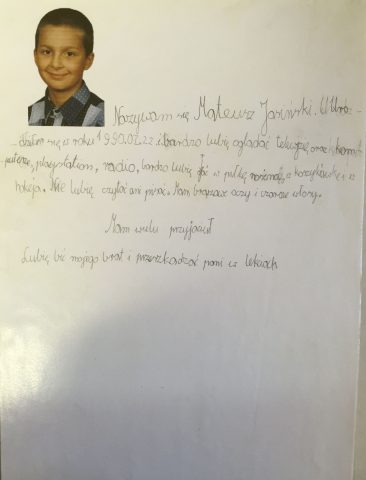 Nazywam się Mateusz Jasiński. Uro-
dziłem się w roku 1990.02.22 i bardzo lubię oglądać telewizję oraz kom
putera, playstation, radio, bardzo lubię w piłkę nożną, koszykówkę i w
hokeja. Nie lubię czytać ani pisać. Mam brązowe oczy i czarne włosy.
Mam wielu przyjaciół
Lubię bić mojego brat i przeszkadzać pani w lekcjach